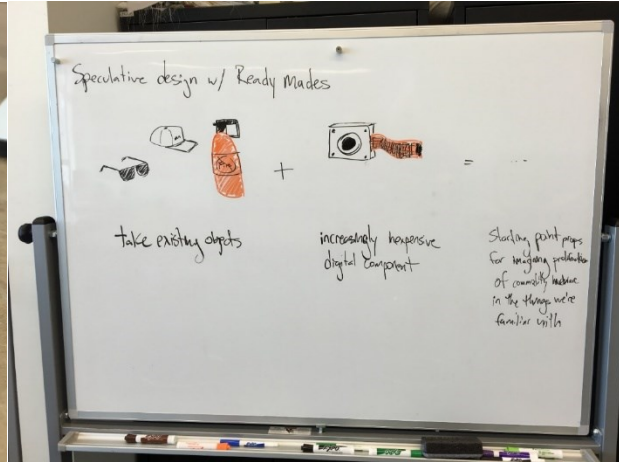 Speculative design w/ Ready Mades
+
= ...
take existing objects
increasingly inexpensive
digital component
Starting point props
for imagining proliferation
of commodity hardware
in the things we're
familiar with